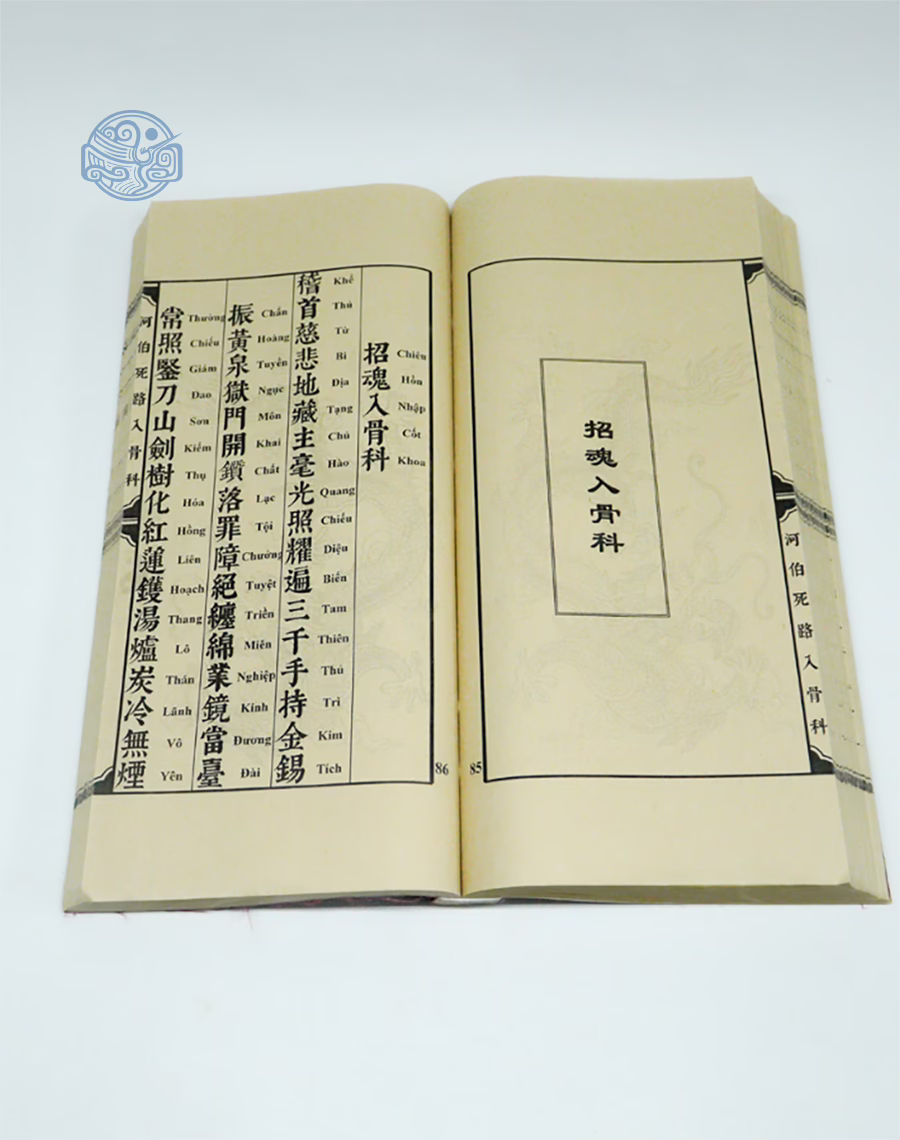 招魂入骨科
河伯死路入骨科
85
招魂入骨科
Chiêu Hồn Nhập Cốt Khoa
稽首慈悲地藏主毫光照耀遍三千手持金錫
Khể Thủ Từ Bi Địa Tạng Chủ Hào Quang Chiếu Diệu Biến Tam Thiên Thủ Trì Kim Tích
振黃泉獄門開鑕落罪障絕纏綿業鏡當臺
Chấn Hoàng Tuyền Ngục Môn Khai Chất Lạc Tội Chướng Tuyệt Triền Miên Nghiệp Kính Đương Đài
常照鋻刀山劍樹化紅蓮鑊湯爐炭冷無煙
Thường Chiếu Giám Đao Sơn Kiếm Thụ Hóa Hồng Liên Hoạch Thang Lô Thán Lãnh Vô Yên
河伯死路入骨科
86